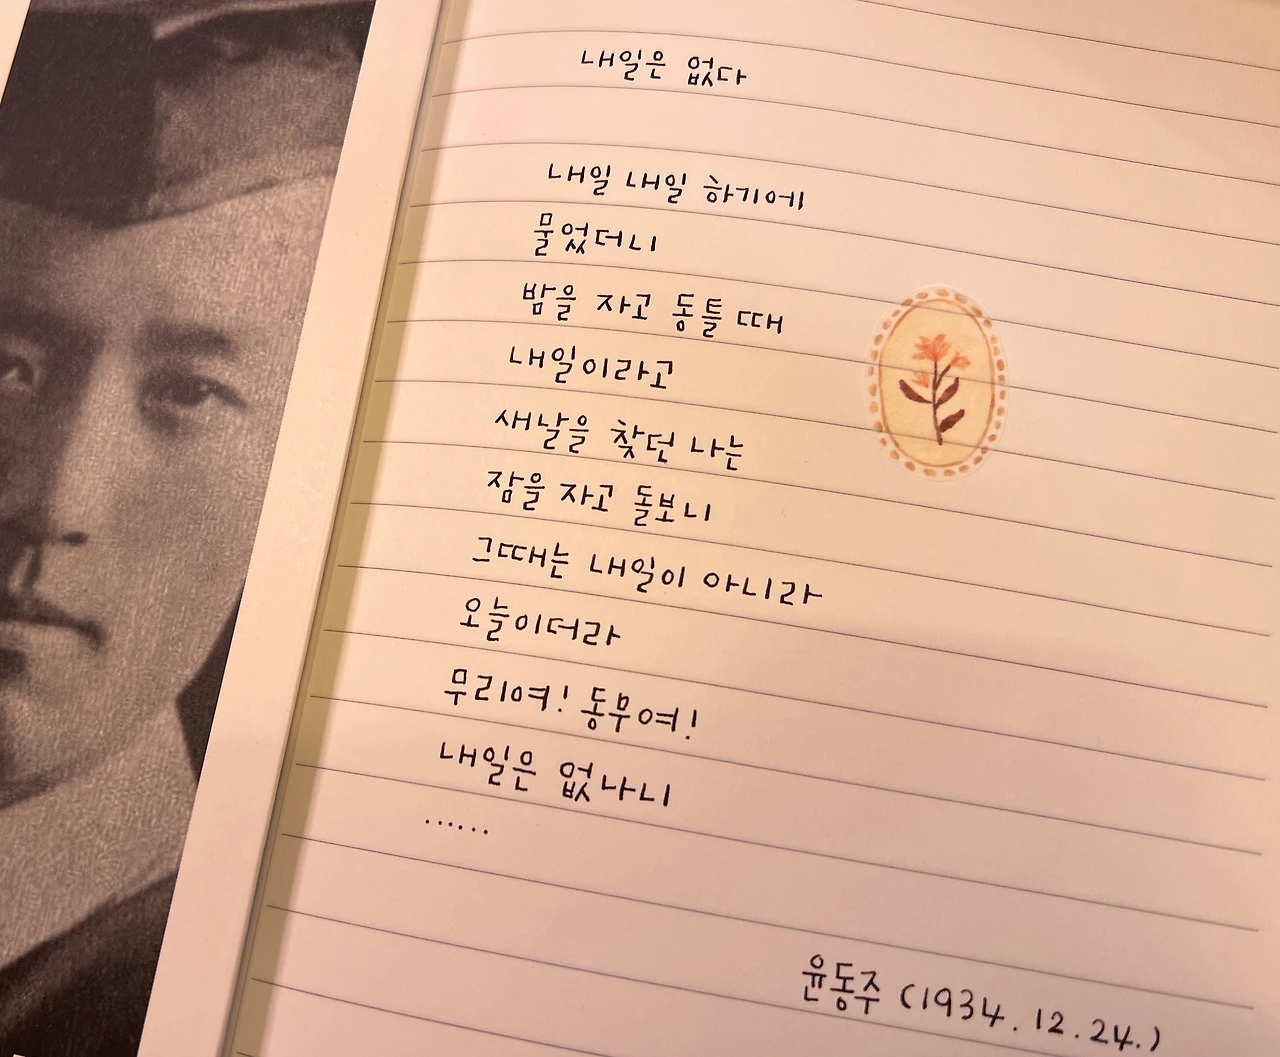 내일은 없다
내일 내일 하기에
물었더니
밤을 자고 동틀 때
내일이라고
새날을 찾던 나는
잠을 자고 돌보니
그때는 내일이 아니라
오늘이더라
무리여! 동무여!
내일은 없나니
......
윤동주 (1934.12.24.)